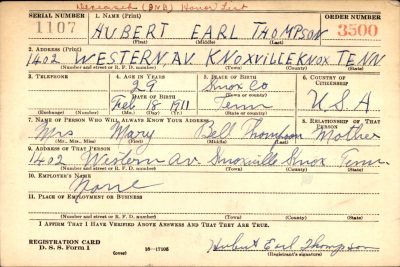 Deceased (DNB) Honor List
SERIAL NUMBER 1. NAME (Print) ORDER NUMBER
1107 HUBERT EARL THOMPSON 3500
(First) (Middle) (Last)
2. ADDRESS (Print)
1402 WESTERN AV. KNOXVILLE KNOX TENN
(Number and street or R. F. D. number) (Town) (County) (State)
3. TELEPHONE 4. AGE IN YEARS 5. PLACE OF BIRTH 6. COUNTRY OF CITIZENSHIP
29 Knox Co
DATE OF BIRTH (Town or county)
Feb 18 1911 Tenn U.S.A
(Exchange) (Number) (Mo.) (Day) (Yr.) (State or country)
7. NAME OF PERSON WHO WILL ALWAYS KNOW YOUR ADDRESS 8. RELATIONSHIP OF THAT PERSON
Mrs Mary Bell Thompson Mother
(Mr., Mrs., Miss) (First) (Middle) (Last)
9. ADDRESS OF THAT PERSON
1402 Western av Knoxville Knox Tenn
(Number and street or R. F. D. number) (Town) (County) (State)
10. EMPLOYER'S NAME
None
11. PLACE OF EMPLOYMENT OR BUSINESS
(Number and street or R. F. D. number) (Town) (County) (State)
I AFFIRM THAT I HAVE VERIFIED ABOVE ANSWERS AND THAT THEY ARE TRUE.
REGISTRATION CARD
D. S. S. Form 1 (over) 16—17105 Hubert Earl Thompson
(Registrant's signature)